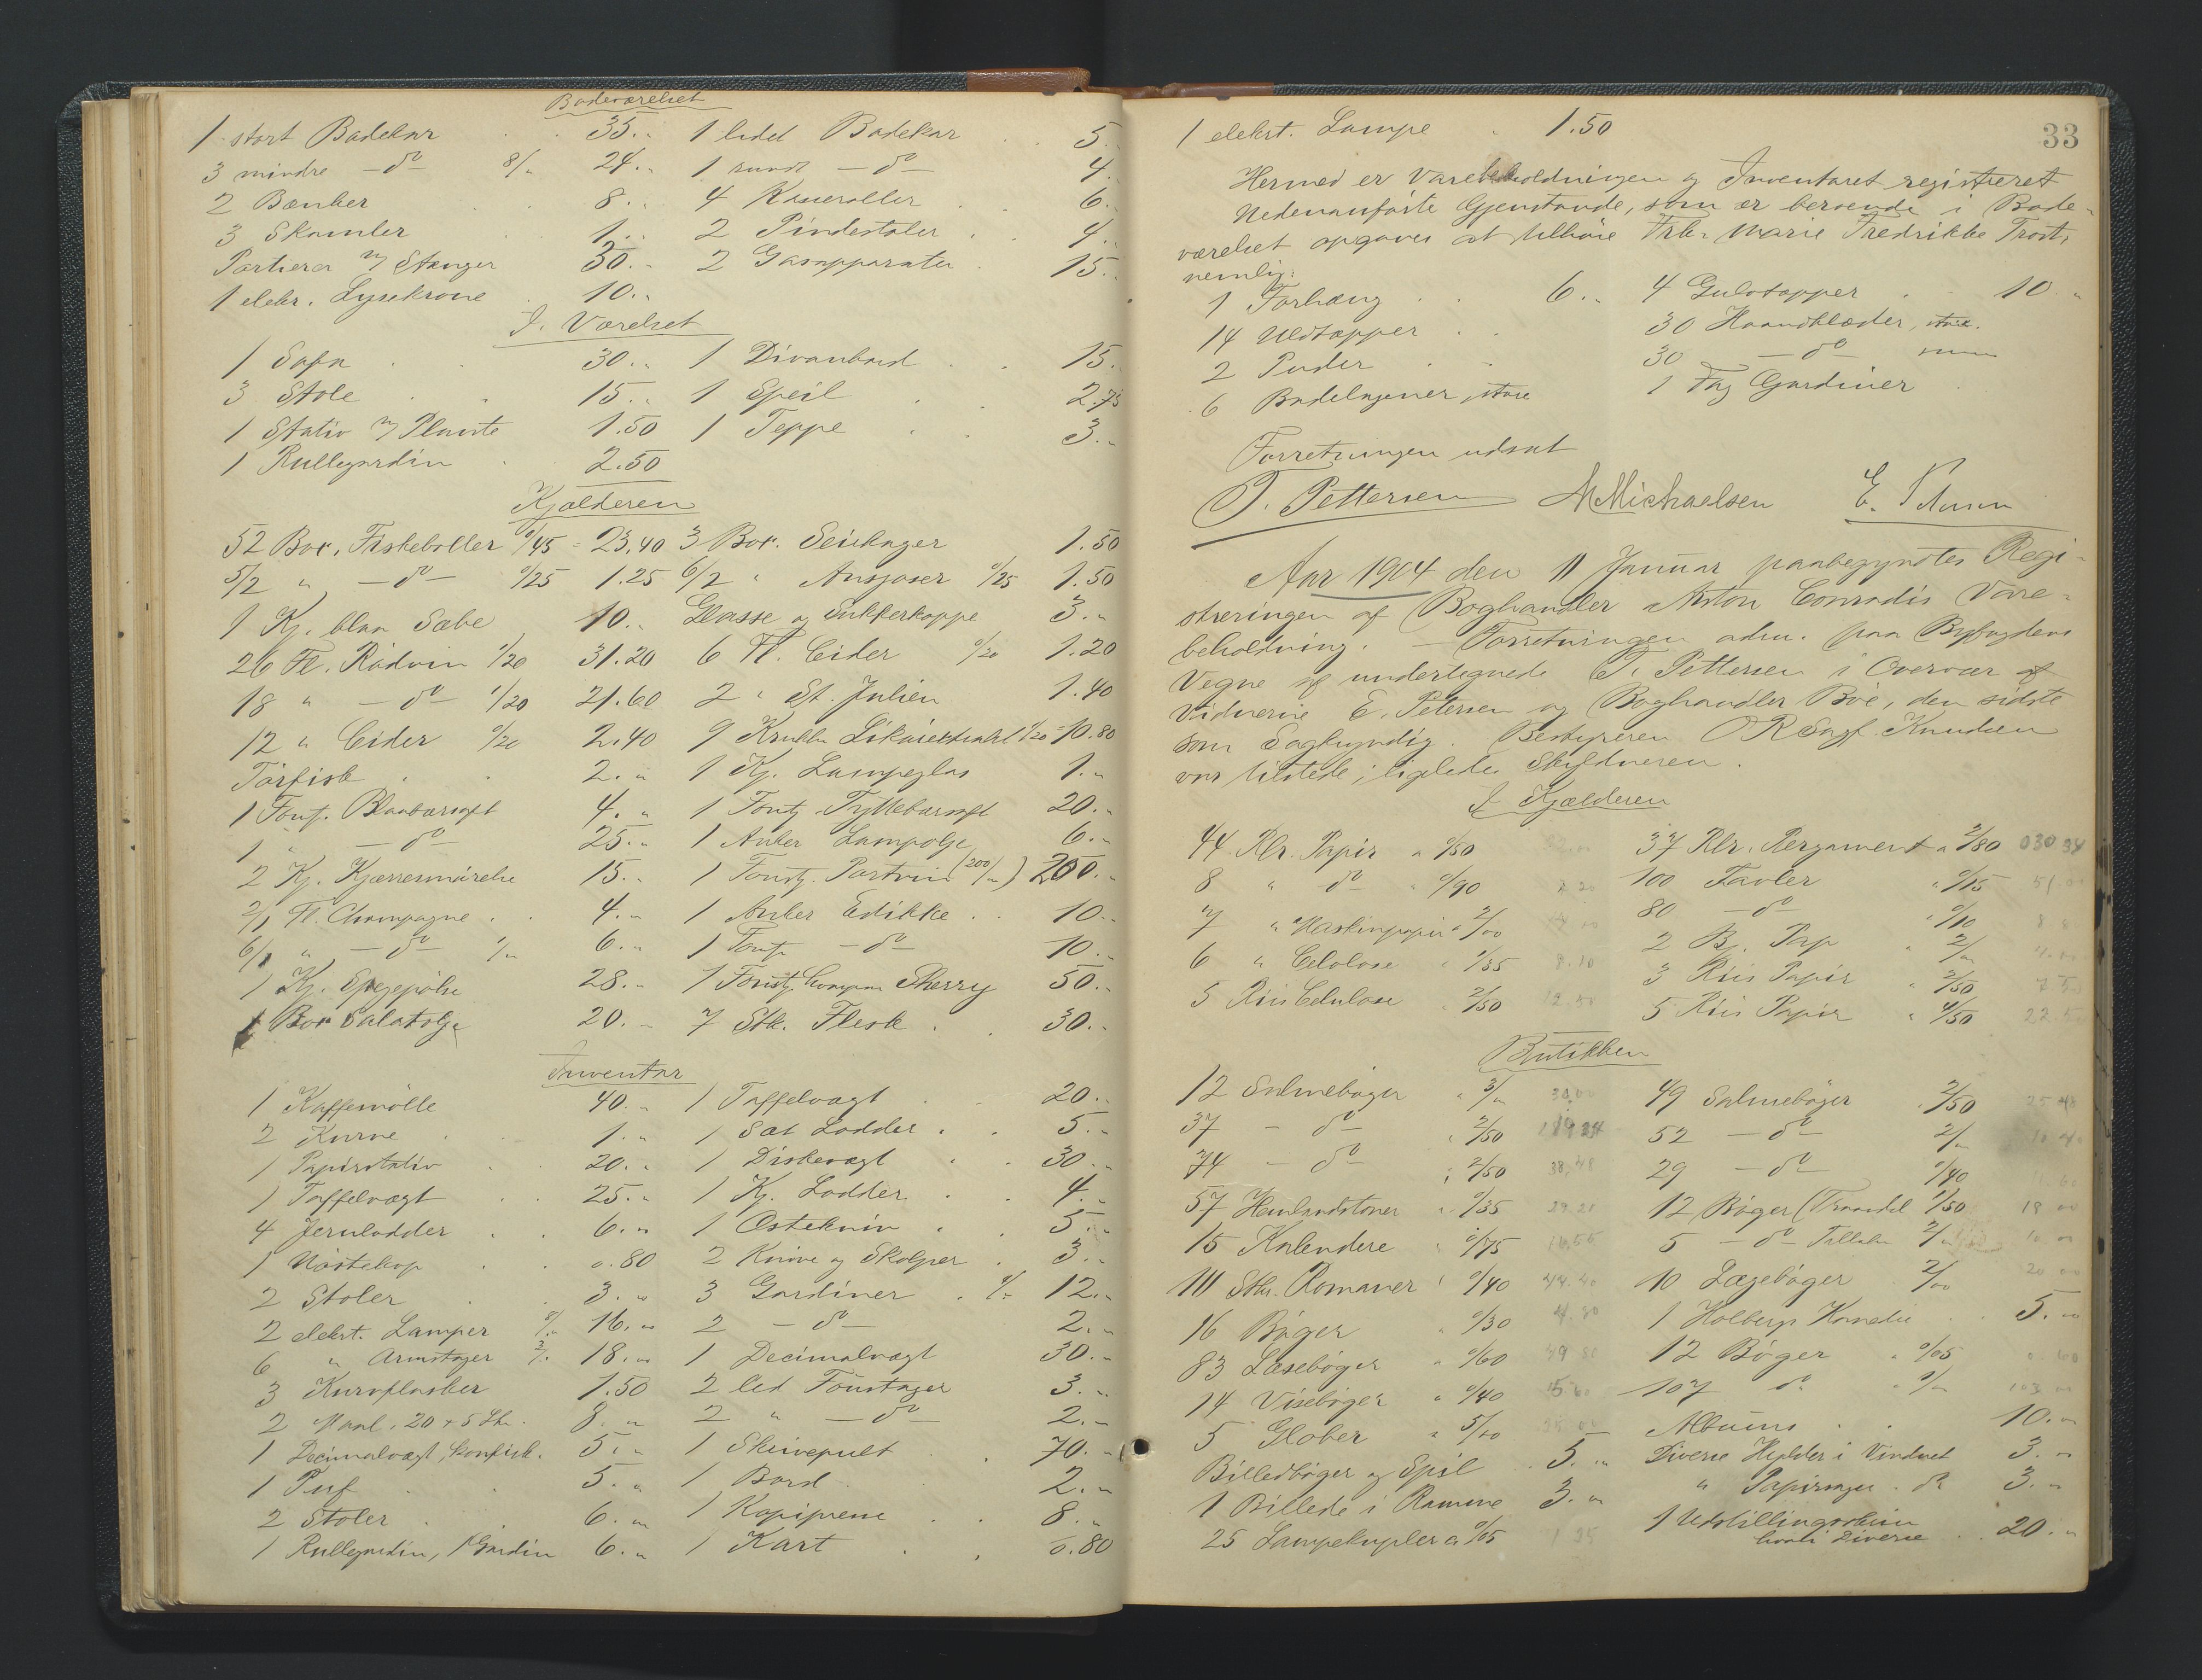 Badeværelset
1 stort Badekar 35.- 1 lidet Badekar 5.-
3 mindre - do - 8/- 24.- 1 rundt - do - 4.-
2 Bænker 8.- 4 Kaseroller 6.-
3 Skamler 1.- 2 Pindestoler 4.-
Portierer m/ Stænger 30.- 2 Gasapparater 15.-
1 elektr. Lysekrone 10.-
I. Værelset
1 Sofa 30.- 1 Divanbord 15.-
3 Stole 15.- 1 Speil 2.75
1 Stativ m/ Plante 1.50 1 Teppe 3.-
1 Rullegardin 2.50
Kjælderen
52 Box. Fiskeboller 0/45 = 23.40 3 Box. Seilager 1.50
5/2 " - do - 0/25 1.25 6/2 " Ansjoser 0/25 1.50
1 Kj. blaa Sæbe 10.- Glasse og Sukkerkoppe 3.-
26 Fl. Rödvin 1/20 31.20 6 Fl. Cider 0/20 1.20
18 " - do - 1/20 21.60 2 " St. Julien 1.40
12 " Cider 0/20 2.40 9 Krukker 1/20 = 10.80
Törfisk 2.- 1 Kj. Lampeglas 1.-
1 Fust. Blaabærsaft 4.- 1 Fustg. Tyttebærsaft 20.-
1 " - do - 25.- 1 Anker Lampolje 6.-
2 Kj. Kjærresmörelse 15.- 1 Fustg. Portvin (200/-) 200.-
2/1 Fl. Champagne 4.- 1 Anker Edikke 10.-
6/1 " - do - 1/- 6.- 1 Fust. - do - 10.-
1 Kj. Spegepölse 28.- 1 Fustg. Sherry 50.-
1 Box Salatolje 20.- 7 Stk. Flesk 30.-
Inventar
1 Kaffemölle 40.- 1 Taffelvægt 20.-
2 Kurve 1.- 1 Sæt Lodder 5.-
1 Papirstativ 20.- 1 Diskevægt 30.-
1 Taffelvægt 25.- 1 Kj. Lodder 4.-
4 Jernlodder 6.- 1 Ostekniv 5.-
1 0.80 2 Knive og Skolper 3.-
2 Stoler 3.- 3 Gardiner 12.-
2 elekt. Lamper 8/- 16.- 2 - do - 2.-
6 " Armstager 3/- 18.- 1 Decimalvægt 30.-
3 Kurvflasker 1.50 2 led Foustager 3.-
2 Maal, 20 + 5 Ltr. 8.- 2 " - do - 2.-
1 Decimalvægt, 5.- 1 Skrivepult 70.-
1 Puf 5.- 1 Bord 2.-
2 Stoler 6.- 1 Kopipresse 8.-
1 Rullegardin, 1 Gardin 6.- 1 Kart 0.80
33
1 elekt. Lampe 1.50
Hermed er Varebeholdningen og Inventaret registreret
Nedenanførte Gjenstande, som er beroende i Bade-
værelset opgaves at tilhöre Frk. Marie Fredrikke Trost,
nemlig:
1 Forhæng 6.- 4 Gulvtæpper 10 -
14 Uldtæpper 30 Haandklæder, store.
2 Puder 30 - do -
6 Badelagener, store 1 Fag Gardiner
Forretningen udsat
T. Pettersen Michaelsen
Aar 1904 den 11 Januar paabegyndtes Regi-
streringen af Boghandler Anton Conradis Vare-
beholdning. - Forretningen adm. paa Byfogdens
Vegne af undertegnede T. Pettersen i Overvær af
Vidnerne E. Petersen og Boghandler Bøe, den sidste
som Sagkyndig. Bestyreren ORSagf. Knudsen
var tilstede; ligeledes Skyldneren.
I Kjælderen
44 Rlr. Papir a 0/50 37 Rlr. Pergament a 2/80
8 " do " 0/90 100 Tavler " 0/15
7 " Maskinpapir " 2/00 80 - do - " 0/10
6 " Celulose " 1/35 2 Bj. Pap " 2/-
5 Riis Celulose " 2/50 3 Riis Papir " 2/50
5 Riis Papir " 4/50
Butikken
12 Salmebøger " 3/- 49 Salmebøger " 2/50
37 - do - " 2/50 52 - do - 2/-
74 - do - " 2/50 29 - do - 0/40
57 Hemlandstoner " 0/35 12 Bøger ( 1/50
15 Kalendere " 0/75 5 - do - 2/-
111 Stk. Romaner " 0/40 10 Lægebøger 2/00
16 Bøger " 0/30 1 Holbergs Komedie 5.-
83 Læsebøger " 0/60 12 Bøger " 0/05
14 Visebøger " 0/40 107 do " 1/-
5 Glober " 5/00 Albums 10.-
Billedbøger og Spil 5.- Diverse Hylder i Vinduet 3.-
1 Billede i Ramme 3.- " Papirsager . do 3.-
25 Lampekupler a 0/05 1 Udstillingsskrin
Diverse 20.-